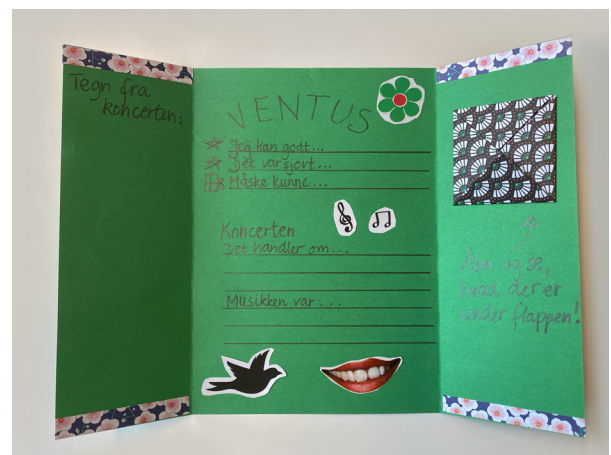 Tegn fra
koncerten:
VENTUS
Jeg kan godt...
Det var sjovt...
Måske kunne...
Koncerten
Det handler om...
Musikken var...
Åbn og se,
hvad, der er
under flappen!